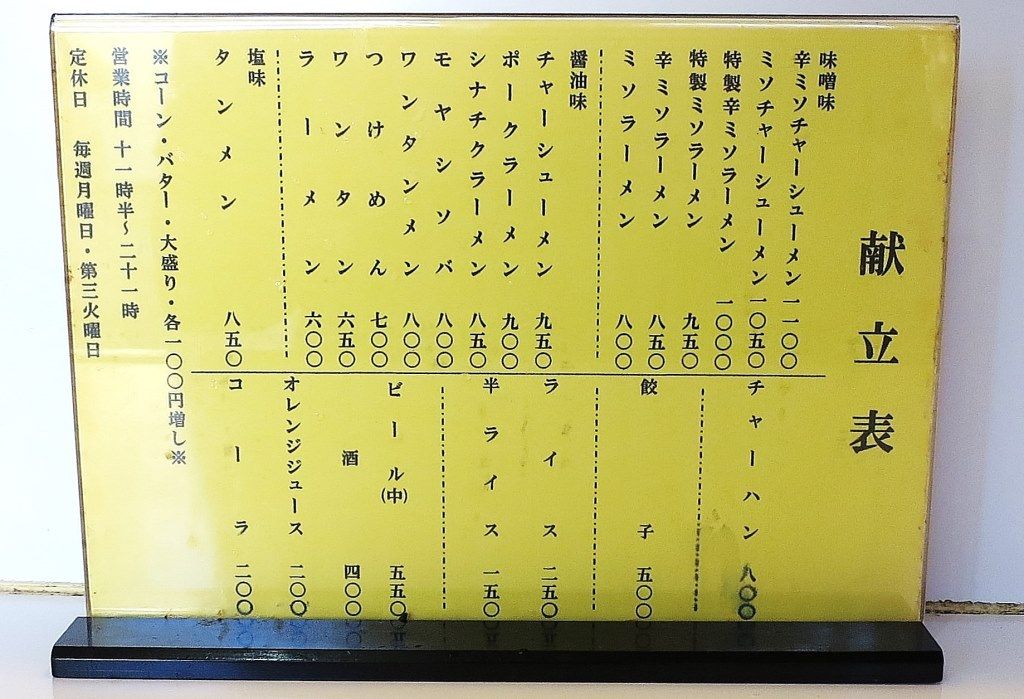 献立表
味噌味
辛ミソチャーシューメン 一一〇〇
ミソチャーシューメン 一〇五〇
特製辛ミソラーメン 一〇〇〇
特製ミソラーメン 九五〇
辛ミソラーメン 八五〇
ミソラーメン 八〇〇
醤油味
チャーシューメン 九五〇
ポークラーメン 九〇〇
シナチクラーメン 八五〇
モヤシソバ 八〇〇
ワンタンメン 八〇〇
つけめん 七〇〇
ワンタン 六五〇
ラーメン 六〇〇
塩味
タンメン 八五〇
チャーハン 八〇〇
餃子 五〇〇
ライス 二五〇
半ライス 一五〇
ビール(中) 五五〇
酒 四〇〇
オレンジジュース 二〇〇
コーラ 二〇〇
※コーン・バター・大盛り・各一〇〇円増し※
営業時間 十一時半～二十一時
定休日 毎週月曜日・第三火曜日